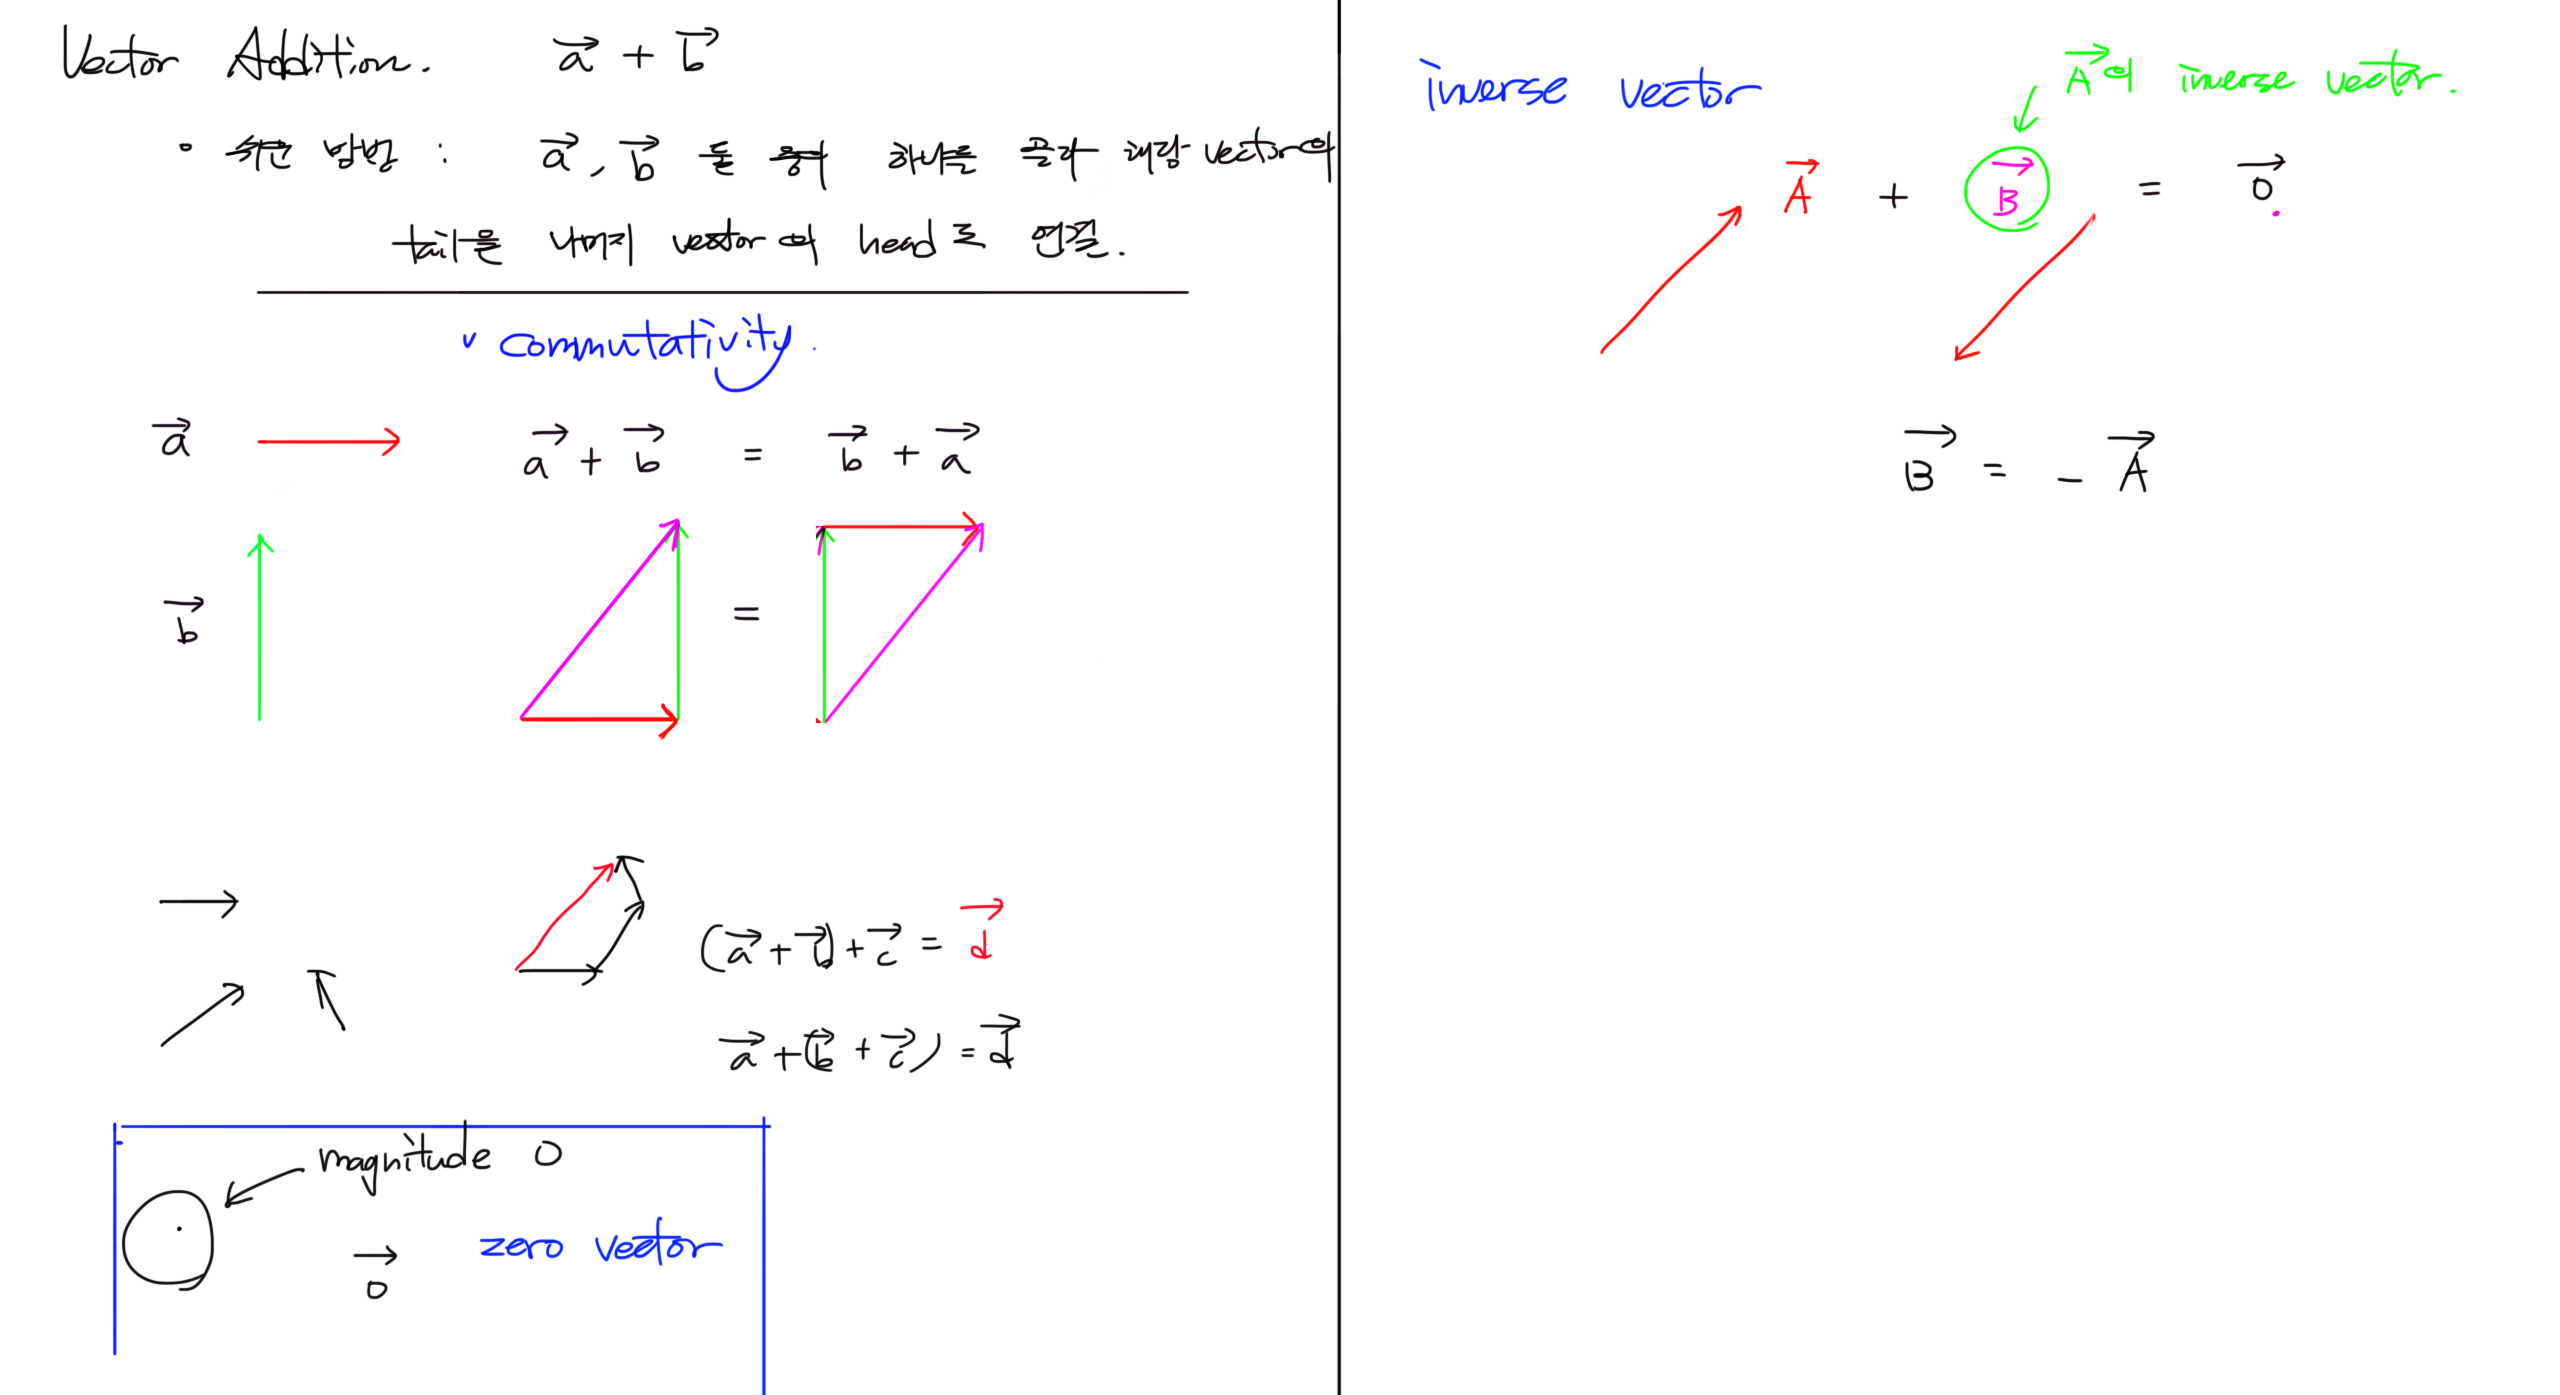 Vector Addition. a⃗ + b⃗
◦ 쉬운 방법 : a⃗, b⃗ 둘 중에 하나를 골라 해당 vector의
tail을 나머지 vector의 head로 연결.
v commutativity.
a⃗
a⃗ + b⃗ = b⃗ + a⃗
b⃗
=
(a⃗ + b⃗) + c⃗ = d⃗
a⃗ + (b⃗ + c⃗) = d⃗
magnitude 0
0⃗ zero vector
inverse vector
A⃗의 inverse vector.
A⃗ + B⃗ = 0⃗
B⃗ = - A⃗